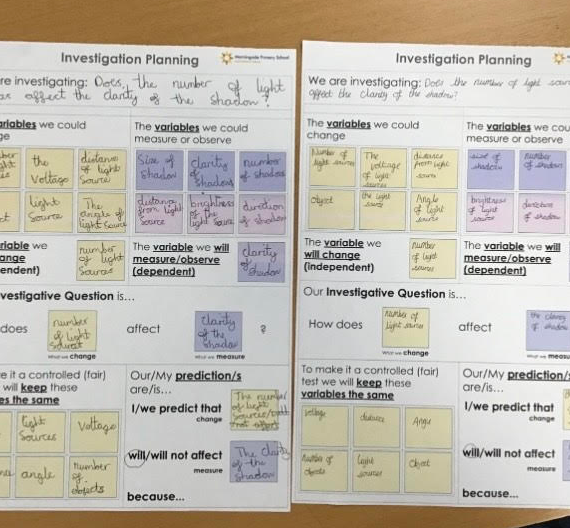 Investigation Planning
Morningside Primary School
re investigating: Does the number of light
affect the clarity of the shadow?
variables we could
ge
The variables we could
measure or observe
the
Voltage
distance
of light
Source
Size of
shadow
clarity
of
shadow
number
of
shadow
light
Source
The
angle of
light Source
distance
from light
Source
brightness
of the
light Source
direction
of shadow
riable we
ange
endent)
number
of light
Sources
The variable we will
measure/observe
(dependent)
clarity
of
shadow
vestigative Question is...
does
number
of light
affect
clarity
of the
shadow
?
What we change
What we measure
e it a controlled (fair)
will keep these
es the same
light
Sources
Voltage
angle
number
of
objects
Our/My prediction/s
are/is...
I/we predict that
change
The number
of light
Sources
will/will not affect
measure
The clarity
of the
shadow
because...
Investigation Planning
We are investigating: Does the number of light
affect the clarity of the shadow?
The variables we could
change
The variables we cou
measure or observe
Number of
light sources
The
voltage
of light
source
distance
from light
source
size of
shadow
number of
shadow
object
the light
source
Angle
of light
source
brightness
of light
source
direction
of shadow
The variable we
will change
(independent)
number
of light
sources
The variable we will
measure/observe
(dependent)
Our Investigative Question is...
How does
number of
light sources
affect
the clarity
of shadow
What we change
What we measu
To make it a controlled (fair)
test we will keep these
variables the same
voltage
distance
Angle
number of
objects
light
sources
Object
Our/My prediction/
are/is...
I/we predict that
change
will/will not affect
measure
because...